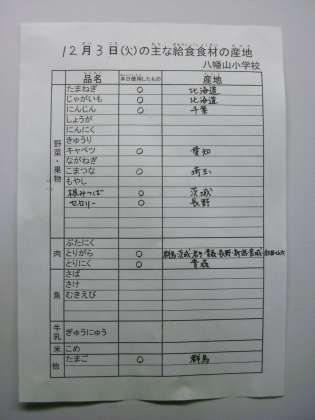 12月3日(火)の主な給食食材の産地
八幡山小学校
品名 本日使用したもの 産地
野菜・果物
たまねぎ ○ 北海道
じゃがいも ○ 北海道
にんじん ○ 千葉
しょうが
にんにく
きゅうり
キャベツ ○ 愛知
ながねぎ
こまつな ○ 埼玉
もやし
根みつば ○ 茨城
セロリー ○ 長野
肉
ぶたにく
とりがら ○
とりにく ○ 青森
魚
さば
さけ
むきえび
牛乳 ぎゅうにゅう
米 こめ
他 たまご ○ 群馬